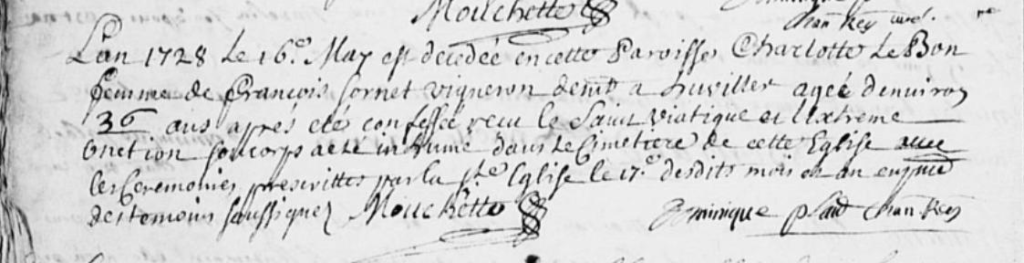 Mouchette
L'an 1728 le 16.e May est décedée en cette Paroisse Charlotte Le Bon
femme de François Cornet vigneron demt a huviller agée denviron
36 ans apres eté confessée recu le Saint Viatique et Lextreme
Onction son corps a eté inhumé dans le Cimetiere de cette Eglise avec
les Ceremonies prescrittes par la Ste Eglise le 17.e desdits mois et an en
des temoins soussignez Mouchette Dominique